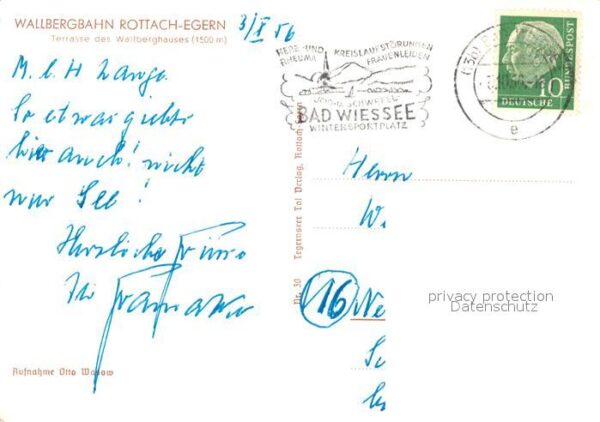 WALLBERGBAHN ROTTACH-EGERN
Terrasse des Wallberghauses (1500 m)
3/X 56
M. l. H
So etwas giebts
hier auch! nicht
nur See!
Herzliche Grüße
Ihr
Aufnahme Otto
Nr. 30 Tegernseer Tal Verlag, Rottach-Egern
HERZ- UND KREISLAUFSTÖRUNGEN
RHEUMA FRAUENLEIDEN
JOD-U. SCHWEFEL-
BAD WIESSEE
WINTERSPORTPLATZ
e
10
DEUTSCHE
BUNDESPOST
Herrn
W.
16 Ne
privacy protection
Datenschutz